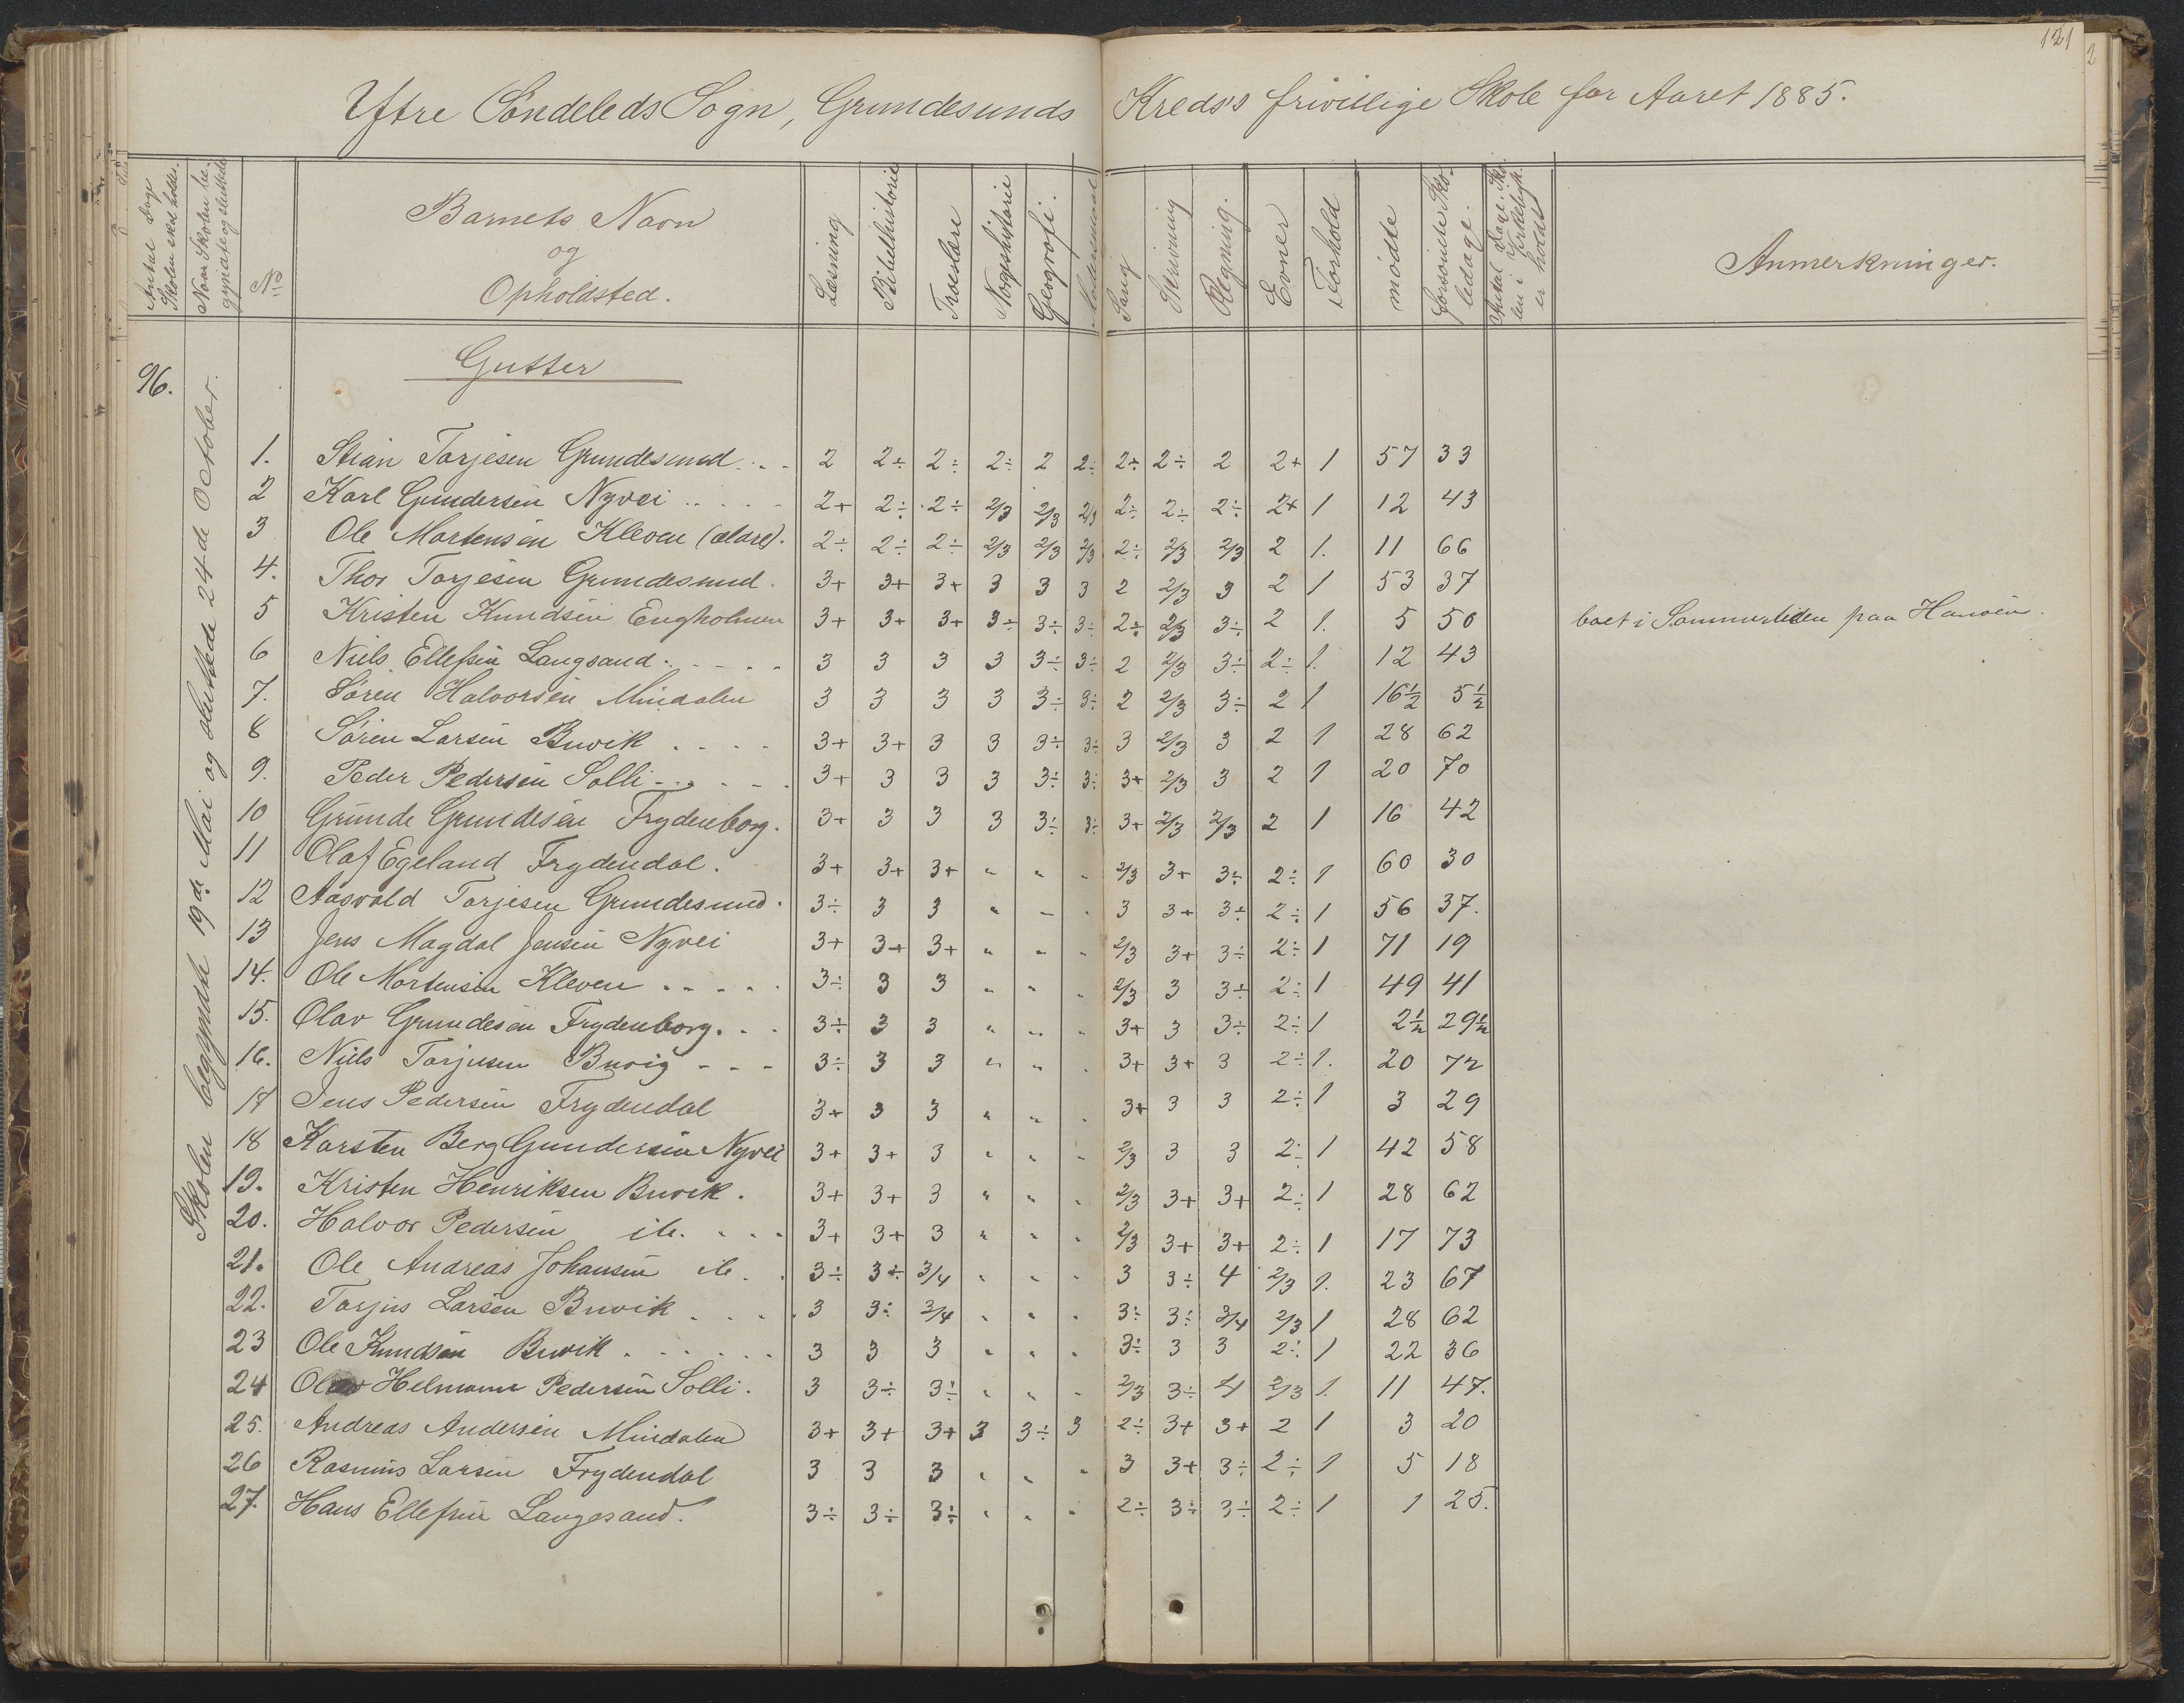 121
2
Yttre Söndeleds Sogn, Grundesunds Kreds's frivillige Skole for Aaret 1885.
Antal Dage Skolen skal holdes.
Naar Skolen begyndte og sluttede
No
Barnets Navn og Opholdsted.
Læsning
Bibelhistorie
Troeslære
Norgeshistorie
Geografi.
Modersmaal
Sang
Skrivning
Regning.
Evner
Forhold
mødte
forsømte Skoledage.
Antal Dage Skolen i Virkeligh. er holdt
Anmerkninger.
96.
Skolen begyndte 19de Mai og sluttede 24de October.
Gutter
1. Stian Torjesen Grundesund 2 2÷ 2÷ 2÷ 2 2÷ 2÷ 2÷ 2 2+ 1 57 33
2 Karl Gundersen Nyvei 2+ 2÷ 2÷ 2/3 2/3 2/3 2÷ 2÷ 2÷ 2+ 1 12 43
3 Ole Mortensen Kleven (ældre). 2÷ 2÷ 2÷ 2/3 2/3 2/3 2÷ 2/3 2/3 2 1. 11 66
4. Thor Torjesen Grundesund. 3+ 3+ 3+ 3 3 3 2 2/3 3 2 1 53 37
5 Kristen Knudsen Engholmen 3+ 3+ 3+ 3÷ 3÷ 3÷ 2÷ 2/3 3÷ 2 1. 5 50 boet i Sommertiden paa Havøen.
6 Niels Ellefsen Langsand 3 3 3 3 3÷ 3÷ 2 2/3 3÷ 2÷ 1. 12 43
7. Søren Halvorsen Mindalen 3 3 3 3 3÷ 3÷ 2 2/3 3÷ 2 1 16½ 5½
8 Søren Larsen Buvik 3+ 3+ 3 3 3÷ 3÷ 3 2/3 3 2 1 28 62
9. Peder Pedersen Solli 3+ 3 3 3 3÷ 3÷ 3+ 2/3 3 2 1 20 70
10 Grunde Grundesen Frydenborg. 3+ 3 3 3 3÷ 3÷ 3+ 2/3 2/3 2 1 16 42
11 Olaf Egeland Frydendal. 3+ 3+ 3+ " " " 2/3 3+ 3÷ 2÷ 1 60 30
12 Aasvald Torjesen Grundesund. 3÷ 3 3 " " " 3 3+ 3÷ 2÷ 1 56 37.
13 Jens Magdal Jensen Nyvei 3+ 3+ 3+ " " " 2/3 3+ 3÷ 2÷ 1 71 19
14. Ole Mortensen Kleven 3÷ 3 3 " " " 2/3 3 3÷ 2÷ 1 49 41
15. Olav Grundesen Frydenborg. 3÷ 3 3 " " " 3+ 3 3÷ 2÷ 1 2½ 29½
16. Niels Torjusen Buvig 3÷ 3 3 " " " 3+ 3+ 3 2÷ 1. 20 72
17 Jens Pedersen Frydendal 3+ 3 3 " " " 3+ 3 3 2÷ 1 3 29
18 Karsten Berg Gundersen Nyvei 3+ 3+ 3 " " " 2/3 3 3 2÷ 1 42 58
19. Kristen Henriksen Buvik. 3+ 3+ 3 " " " 2/3 3+ 3+ 2÷ 1 28 62
20. Halvor Pedersen ib. 3+ 3+ 3 " " " 2/3 3+ 3+ 2÷ 1 17 73
21. Ole Andreas Johansen ib. 3÷ 3÷ 3/4 " " " 3 3÷ 4 2/3 1. 23 67
22. Torjus Larsen Buvik 3 3÷ 3/4 " " " 3÷ 3÷ 3/4 2/3 1 28 62
23 Ole Knudsen Buvik 3 3 3 " " " 3÷ 3 3 2÷ 1 22 36
24 Helmann Pedersen Solli. 3 3÷ 3÷ " " " 2/3 3÷ 4 2/3 1. 11 47.
25. Andreas Andersen Mindalen 3+ 3+ 3+ 3 3÷ 3 2÷ 3+ 3+ 2 1 3 20
26 Rasmus Larsen Frydendal 3 3 3 " " " 3 3+ 3÷ 2÷ 1 5 18
27. Hans Ellefsen Langesand. 3÷ 3÷ 3÷ " " " 2÷ 3÷ 3÷ 2÷ 1 1 25.